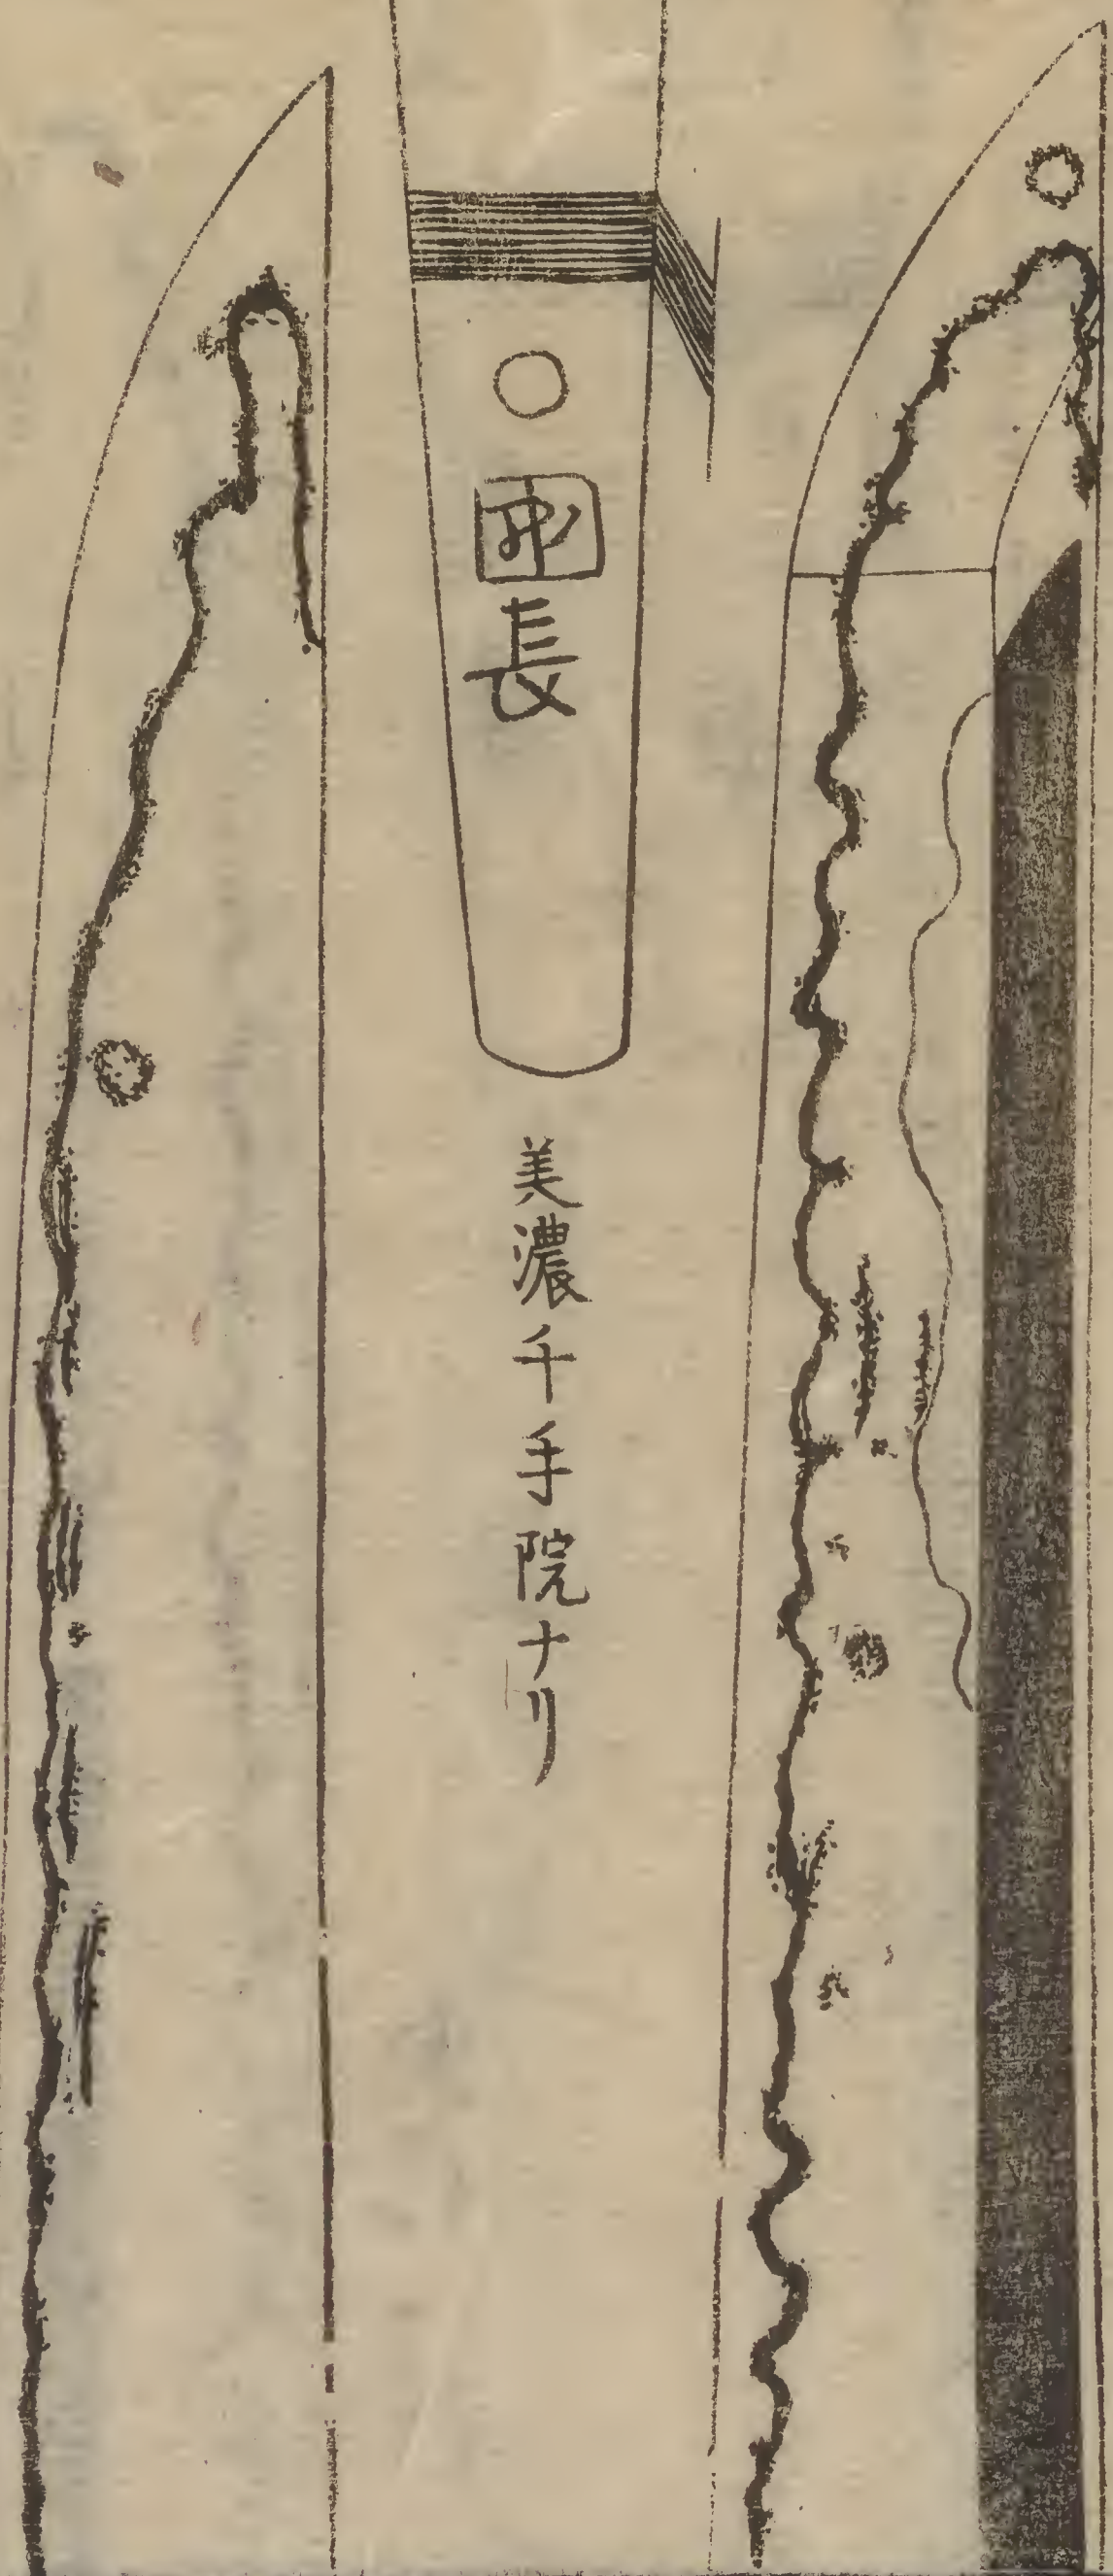 國長
美濃千手院ナリ